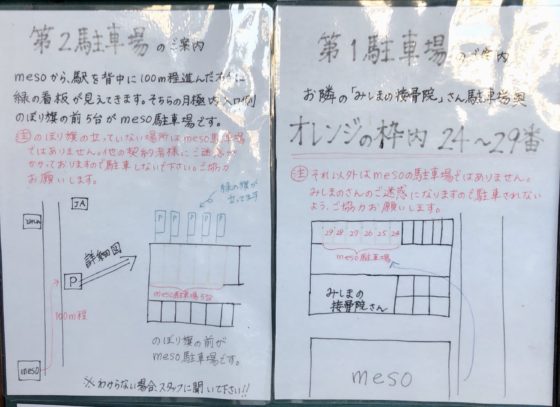 第2駐車場のご案内
mesoから、駅を背中に100m程進んだ
緑の看板が見えてきます。そちらの月極内入口側
のぼり旗の前5台がmeso駐車場です。
注のぼり旗の立っていない場所はmeso駐車場
ではありません。他の契約者様にご迷惑が
かかっておりますので駐車しないで下さい。ご協力
お願いします。
JA
P
詳細図
100m程
meso
緑の旗が
立ってます
P P P P P
meso駐車場5台
のぼり旗の前が
meso駐車場です。
※わからない場合、スタッフに聞いて下さい!!
第1駐車場のご案内
お隣の「みしまの接骨院」さん駐車場奥
オレンジの枠内 24〜29番
注それ以外はmesoの駐車場ではありません。
みしまのさんのご迷惑になりますので駐車されない
よう、ご協力お願いします。
29 28 27 26 25 24
meso駐車場
みしまの
接骨院さん
meso